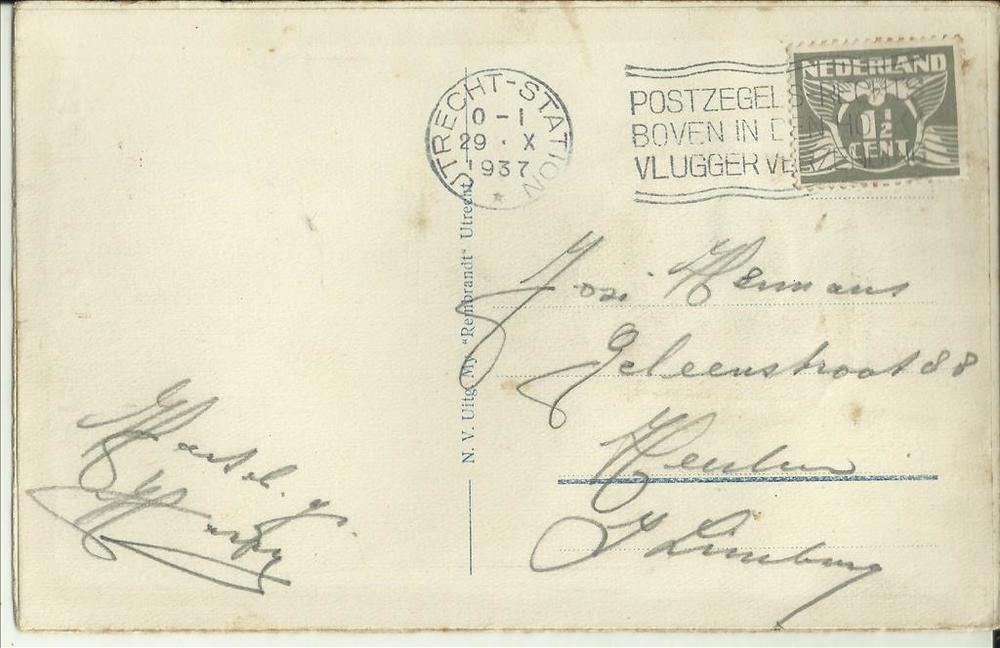 UTRECHT-STATION
0-1
29 · X
1937
POSTZEGELS RECHTS
BOVEN IN DEN HOEK
VLUGGER VERZE
NEDERLAND
1½
CENT
N. V. Uitg. My. "Rembrandt" Utrecht
Josi Hermans
Geleenstraat 88
Heerlen
Z Limburg
Hartel. gr
Harry